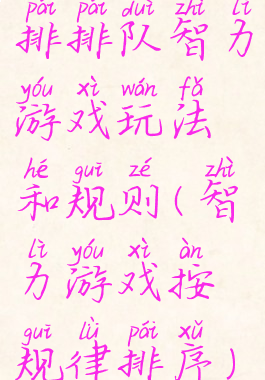 pái pái duì zhì lì
排排队智力
yóu xì wán fǎ
游戏玩法
hé guī zé zhì
和规则(智
lì yóu xì àn
力游戏按
guī lǜ pái xǔ
规律排序)